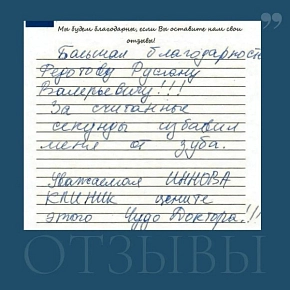 Мы будем благодарны, если Вы оставите нам свои
отзывы!
Большая благодарность
Федотову Руслану
Валерьевичу!!!
За считанные
секунды избавил
меня от зуба.
Уважаемая ИННОВА
КЛИНИК цените
этого Чудо Доктора!!!
ОТЗЫВЫ